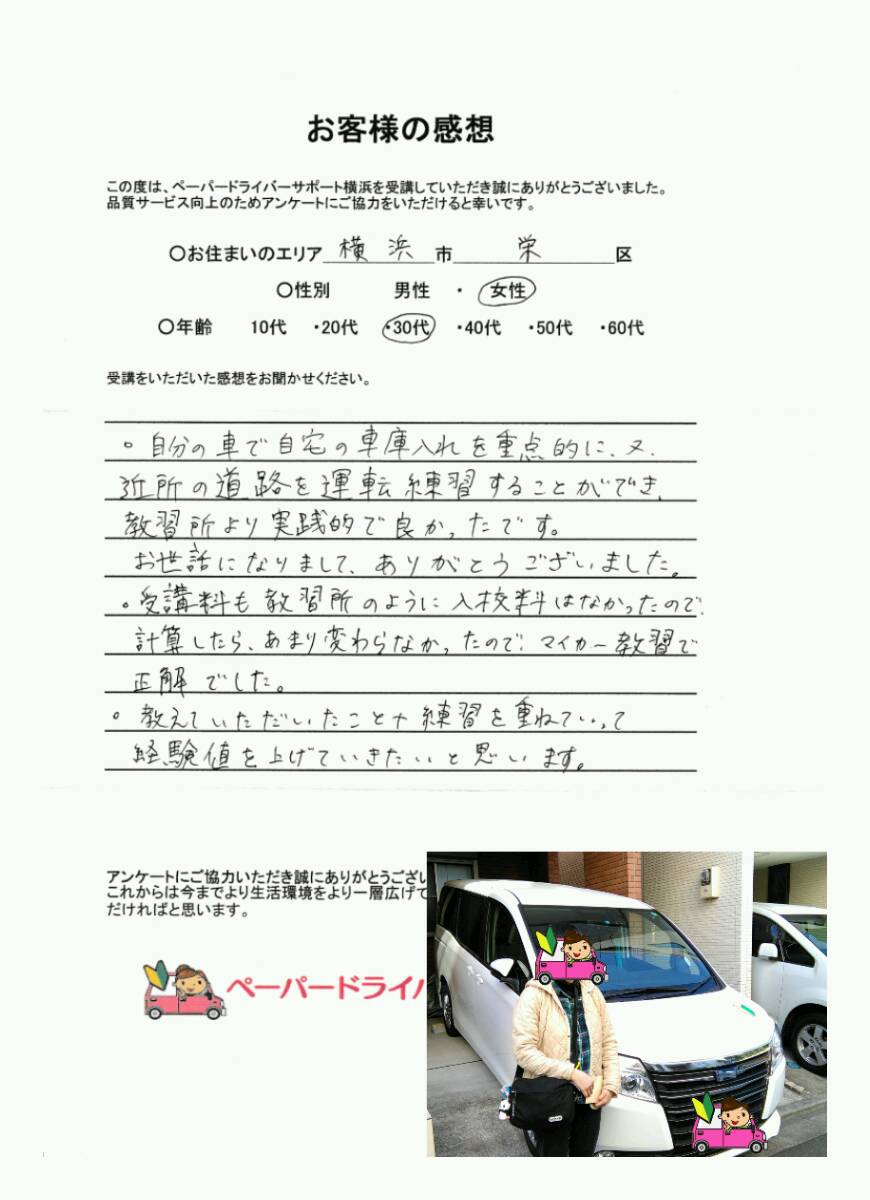 お客様の感想
この度は、ペーパードライバーサポート横浜を受講していただき誠にありがとうございました。
品質サービス向上のためアンケートにご協力をいただけると幸いです。
○お住まいのエリア 横浜 市 栄 区
○性別 男性 ・ 女性
○年齢 10代 ・20代 ・30代 ・40代 ・50代 ・60代
受講をいただいた感想をお聞かせください。
。自分の車で自宅の車庫入れを重点的に、又、
近所の道路を運転練習することができ、
教習所より実践的で良かったです。
お世話になりまして、ありがとうございました。
。受講料も教習所のように入校料はなかったので、
計算したら、あまり変わらなかったので、マイカー教習で
正解でした。
。教えていただいたこと+練習を重ねていって
経験値を上げていきたいと思います。
アンケートにご協力いただき誠にありがとうござい
これからは今までより生活環境をより一層広げて
だければと思います。
ペーパードライバ